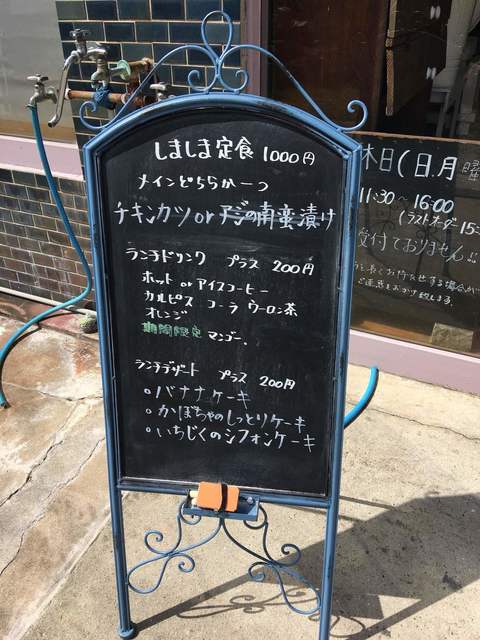 しましま定食 1000円
メインどちらか一つ
チキンカツ or アジの南蛮漬け
ランチドリンク プラス 200円
ホット or アイスコーヒー
カルピス コーラ ウーロン茶
オレンジ
期間限定 マンゴー、
ランチデザート プラス 200円
○バナナケーキ
○かぼちゃのしっとりケーキ
○いちじくのシフォンケーキ
休日(日.月 曜
11:30 ~ 16:00
(ラストオーダー 15:
受付ておりません!!
お待たせする場合が